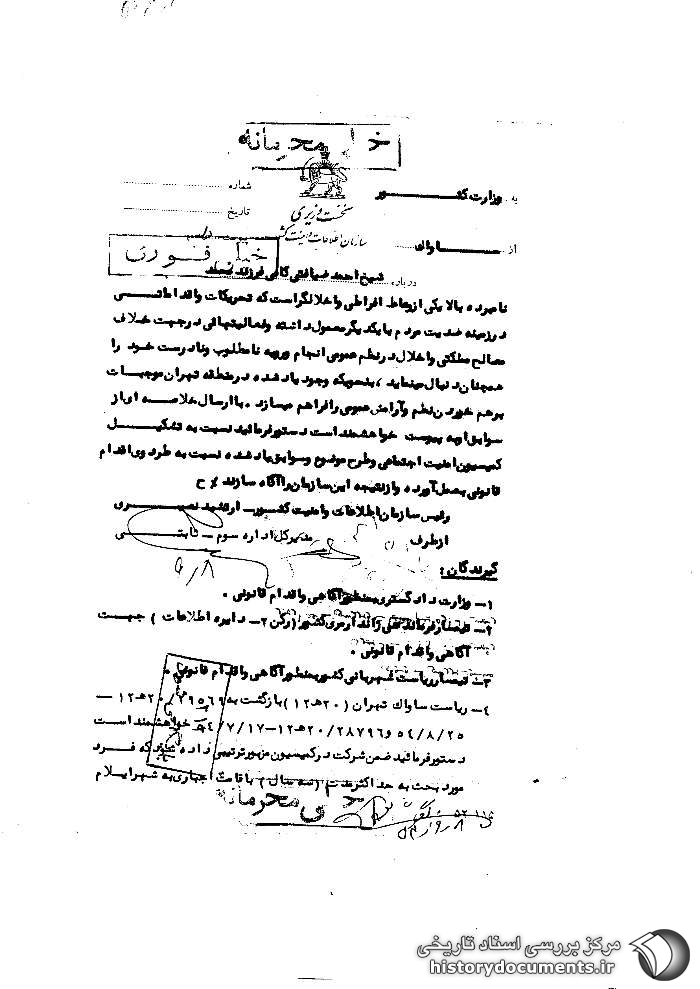 خیلی محرمانه
شماره
تاریخ
به وزارت کشور
نخست وزیری
سازمان اطلاعات و امنیت کشور
از ساواک
خیلی فوری
درباره شیخ احمد ضیافتی کافی فرزند محمد
نامبرده بالا یکی از وعاظ افراطی و اخلالگر است که تحریکات و اقداماتی
در زمینه ضدیت مردم با یکدیگر معمول داشته و فعالیتهائی در جهت خلاف
مصالح مملکتی و اخلال در نظم عمومی انجام و رویه نامطلوب و نادرست خود را
همچنان دنبال مینماید ، بنحویکه وجود یاد شده در منطقه تهران موجبات
برهم خوردن نظم و آرامش عمومی را فراهم میسازد . با ارسال خلاصه ای از
سوابق او به پیوست خواهشمند است دستور فرمائید نسبت به تشکیل
کمیسیون امنیت اجتماعی و طرح موضوع و سوابق یاد شده نسبت به طرد وی اقدام
قانونی بعمل آورده و از نتیجه این سازمان را آگاه سازند ٪ ح
رئیس سازمان اطلاعات و امنیت کشور - ارتشبد نصیری
از طرف مدیر کل اداره سوم - ثابتی
۵/۸
گیرندگان :
۱- وزارت دادگستری بمنظور آگاهی و اقدام قانونی .
۲- تیمسار فرماندهی ژاندارمری کشور (رکن ۲- دایره اطلاعات ) جهت
آگاهی و اقدام قانونی .
۳- تیمسار ریاست شهربانی کشور بمنظور آگاهی و اقدام قانونی .
۴- ریاست ساواک تهران ( ۲۰ ه ۱۲ ) بازگشت به ۲۹۵۶۹ / ۲۰ ه ۱۲ -
۵۴/۸/۲۵ و ۲۸۷۹۶ / ۲۰ ه ۱۲ - ۵۴/۷/۱۷ خواهشمند است
دستور فرمائید ضمن شرکت در کمیسیون مزبور ترتیبی داده شود که فرد
مورد بحث به حداکثر مدت (سه سال ) با اقامت اجباری به شهر ایلام
خیلی محرمانه
مرکز بررسی اسناد تاریخی
historydocuments.ir